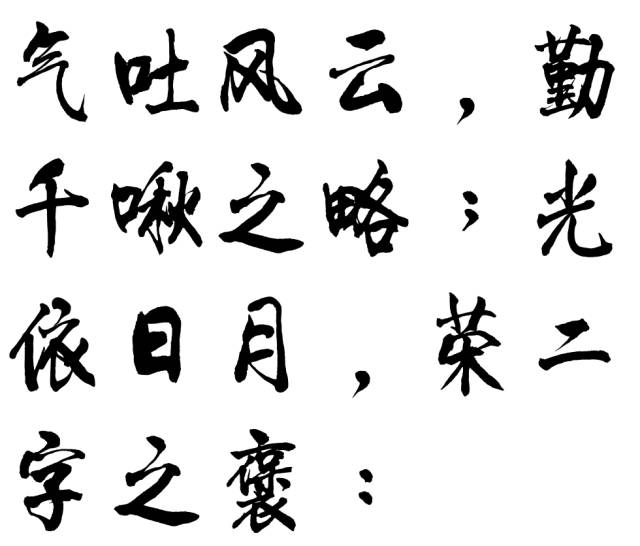 气吐风云，勤
千啾之略；光
依日月，荣二
字之褒：